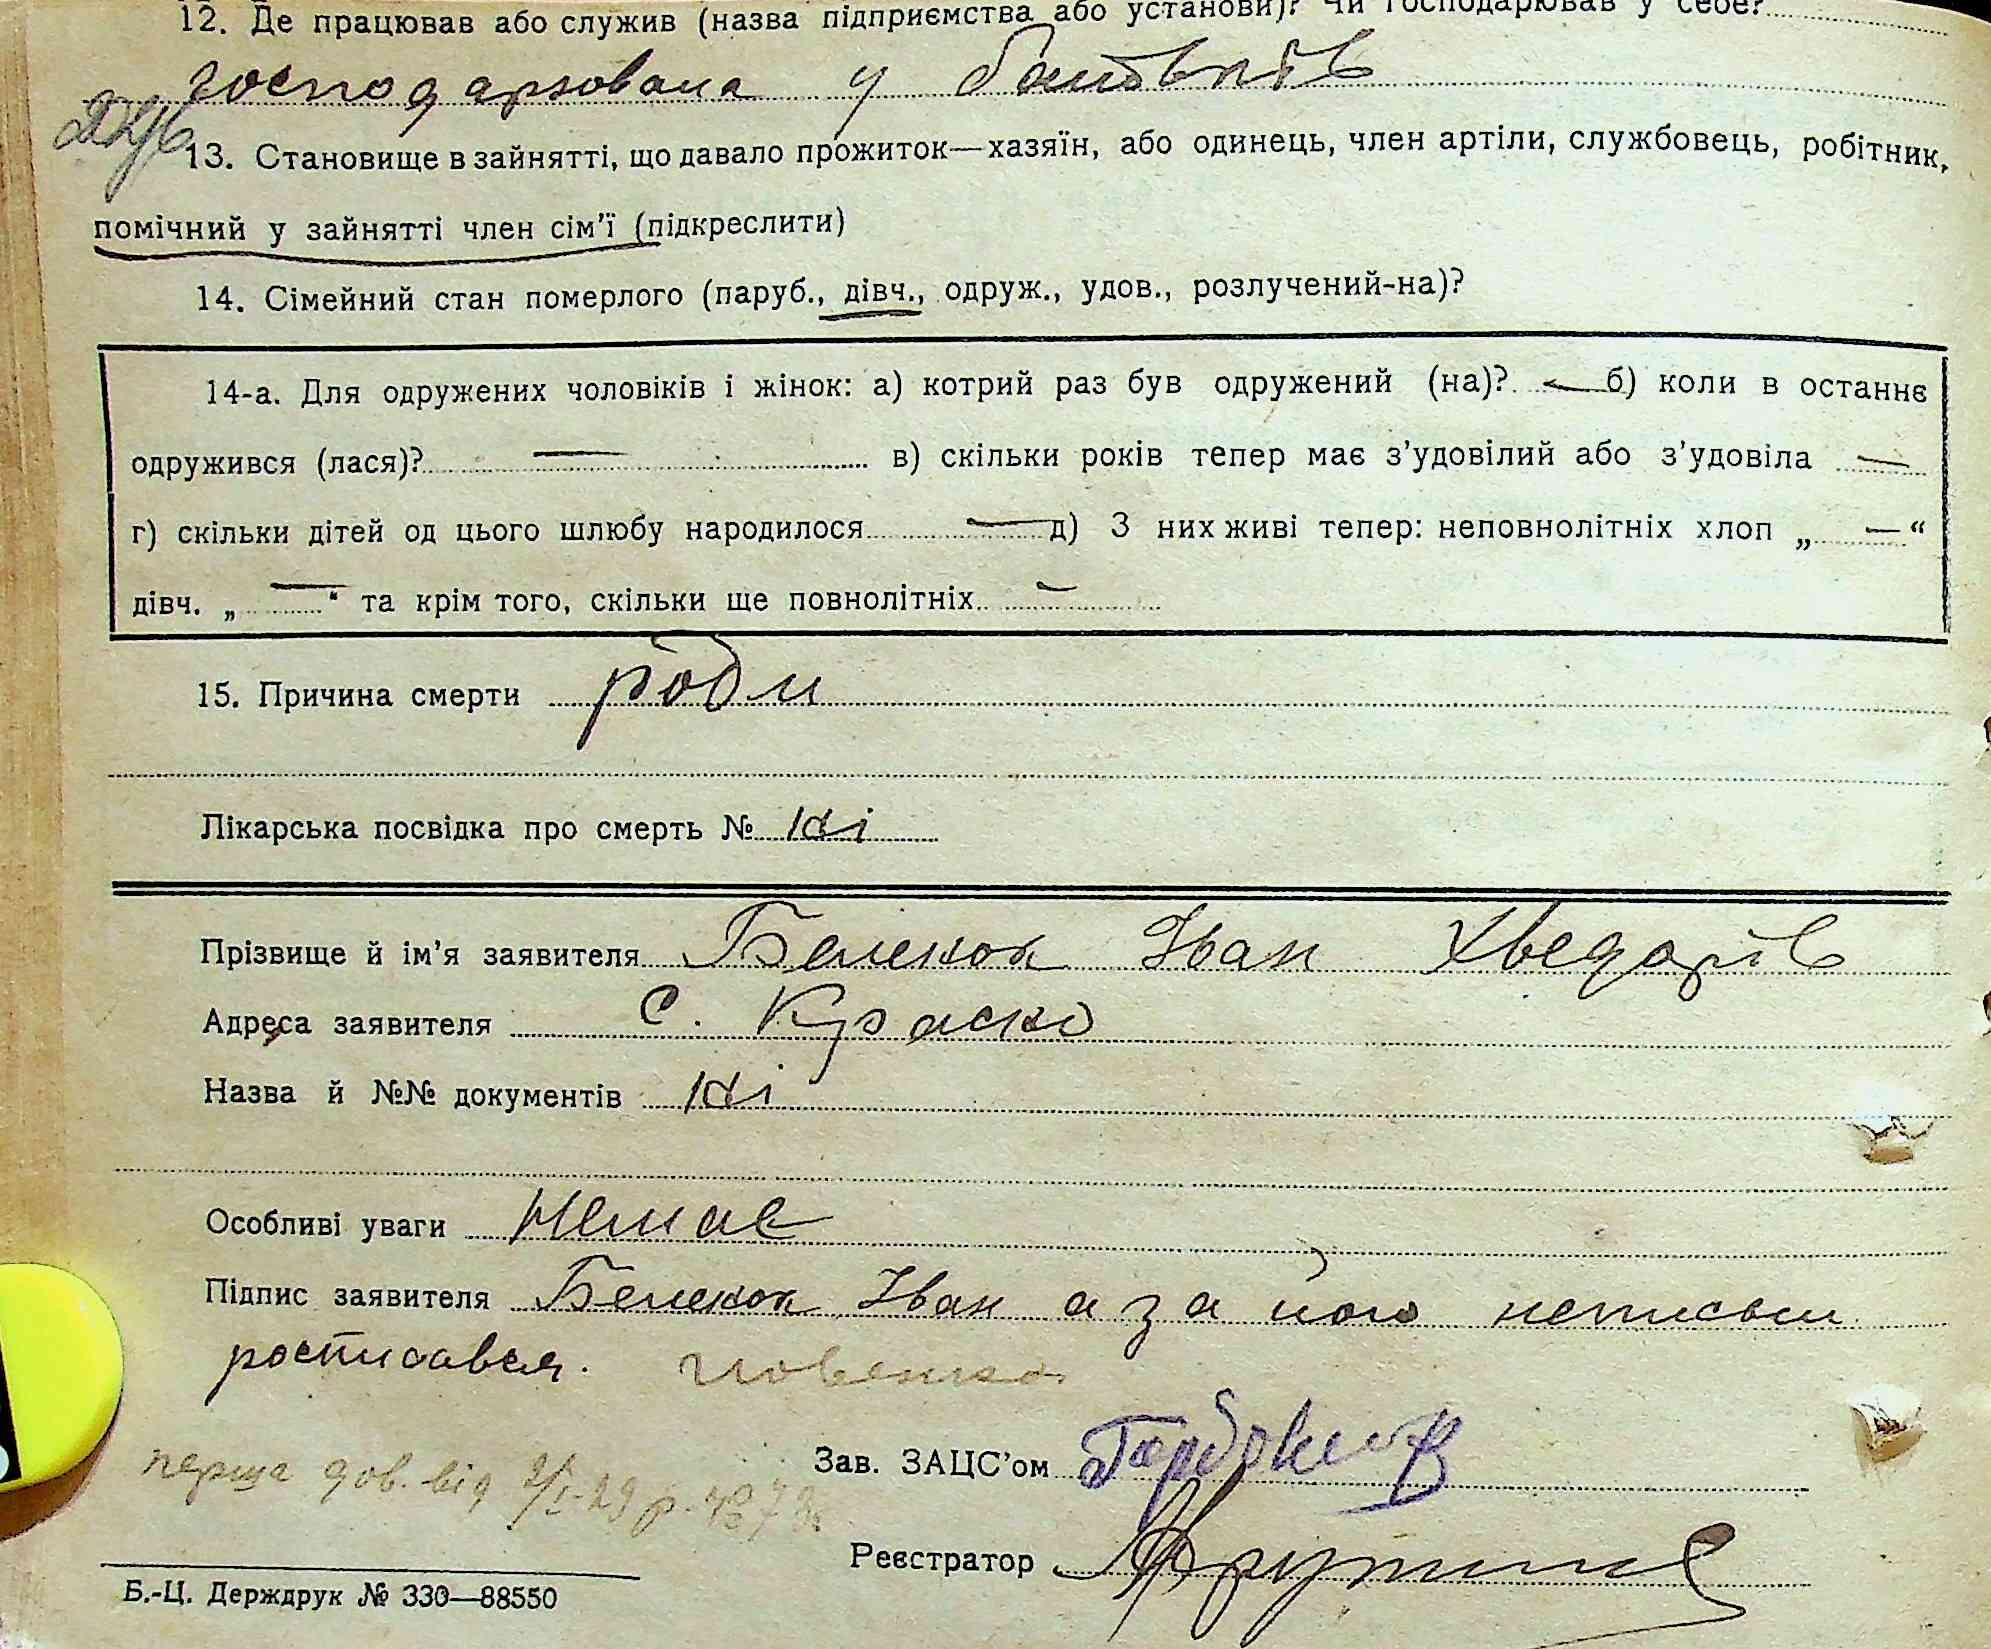 12. Де працював або служив (назва підприємства або установи)? Чи господарював у себе?
господарювала у батьків
13. Становище в зайнятті, що давало прожиток—хазяїн, або одинець, член артіли, службовець, робітник,
помічний у зайнятті член сім'ї (підкреслити)
14. Сімейний стан померлого (паруб., дівч., одруж., удов., розлучений-на)?
14-а. Для одружених чоловіків і жінок: а) котрий раз був одружений (на)? — б) коли в останнє
одружився (лася)? — в) скільки років тепер має з'удовілий або з'удовіла —
г) скільки дітей од цього шлюбу народилося — д) З них живі тепер: неповнолітніх хлоп „ — “
дівч. „ — “ та крім того, скільки ще повнолітніх —
15. Причина смерти роди
Лікарська посвідка про смерть №
Прізвище й ім'я заявителя Іван Хведорів
Адреса заявителя с.
Назва й №№ документів
Особливі уваги Немає
Підпис заявителя Іван а за його неписьм
росписався.
перша дов. від
Зав. ЗАЦС'ом
Реєстратор
Б.-Ц. Держдрук № 330—88550